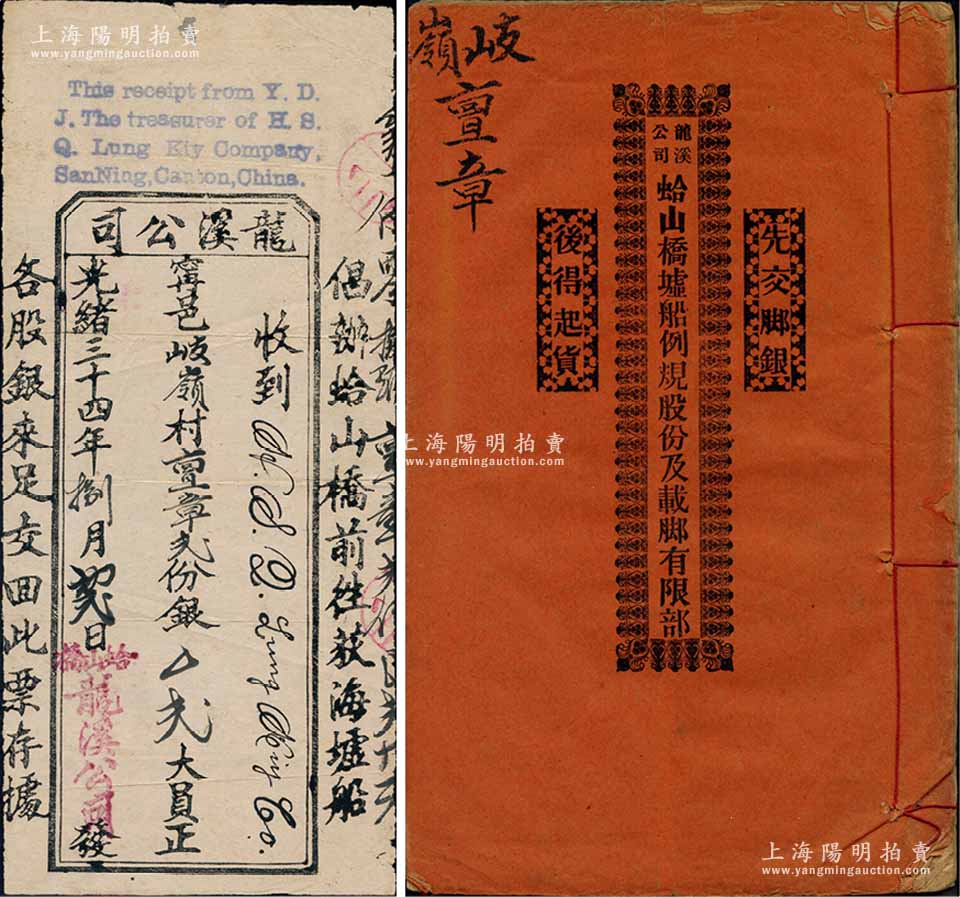 上海陽明拍賣
www.yangmingauction.com
This receipt from Y. D.
J. The treasurer of H. S.
Q. Lung Kiy Company,
SanNing, Canton, China.
龍溪公司
倡辦蛤山橋前往荻海墟船
收到 H. S. Q. Lung Kiy Co.
甯邑岐嶺村亶章弍份銀
大員正
光緒三十四年捌月 日
蛤山橋
龍溪公司
發
各股銀來足交回此票存據
岐嶺
亶章
龍溪公司
蛤山橋墟船例規股份及載脚有限部
先交脚銀
後得起貨
上海陽明拍賣
www.yangmingauction.com
上海陽明拍賣
www.yangmingauction.com